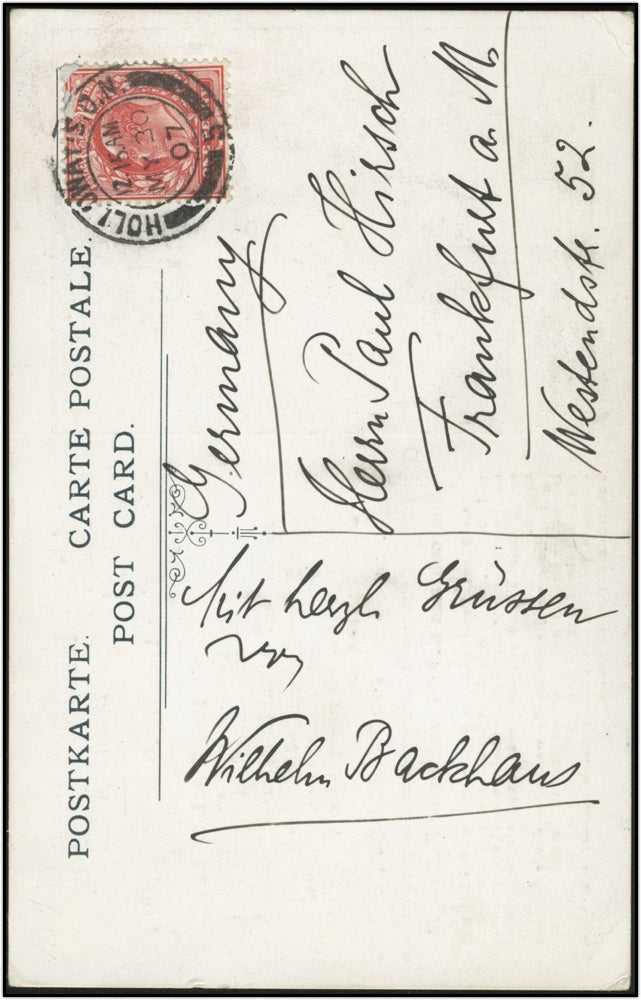 POSTKARTE. CARTE POSTALE.
POST CARD.
HOLLOWAY S.O.N.
12.15AM
30
07
Germany
Herrn Paul Hirsch
Frankfurt a. M.
Westendstr. 52.
Mit herzl. Grüssen
von
Wilhelm Backhaus